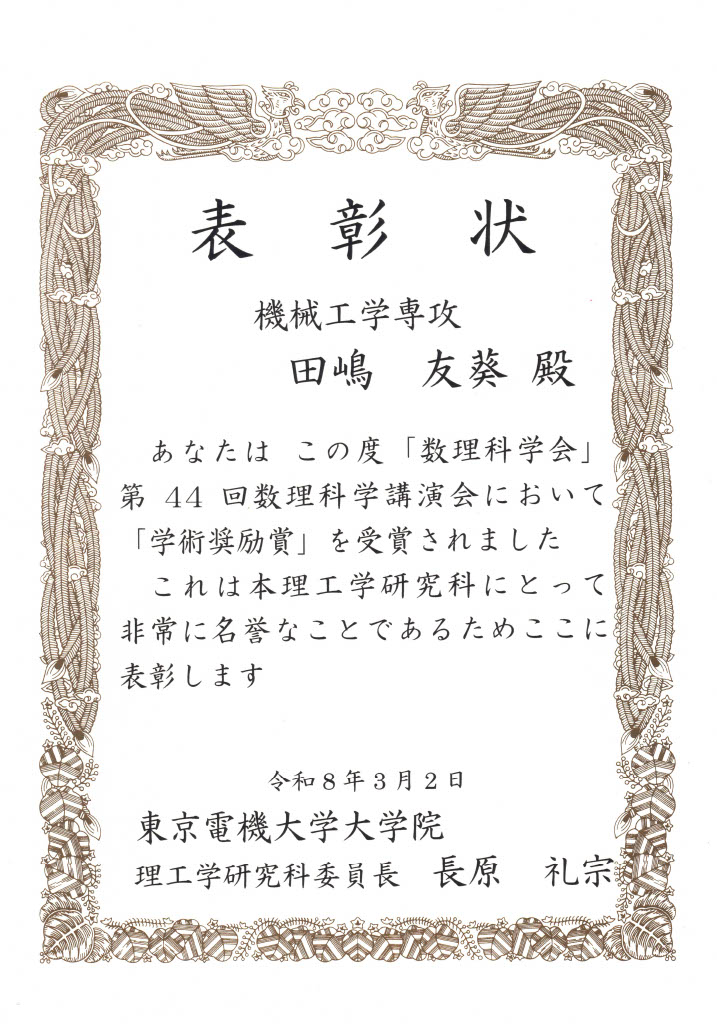 表彰状
機械工学専攻
田嶋 友葵 殿
あなたは この度「数理科学会」
第 44 回数理科学講演会において
「学術奨励賞」を受賞されました
これは本理工学研究科にとって
非常に名誉なことであるためここに
表彰します
令和8年3月2日
東京電機大学大学院
理工学研究科委員長 長原 礼宗